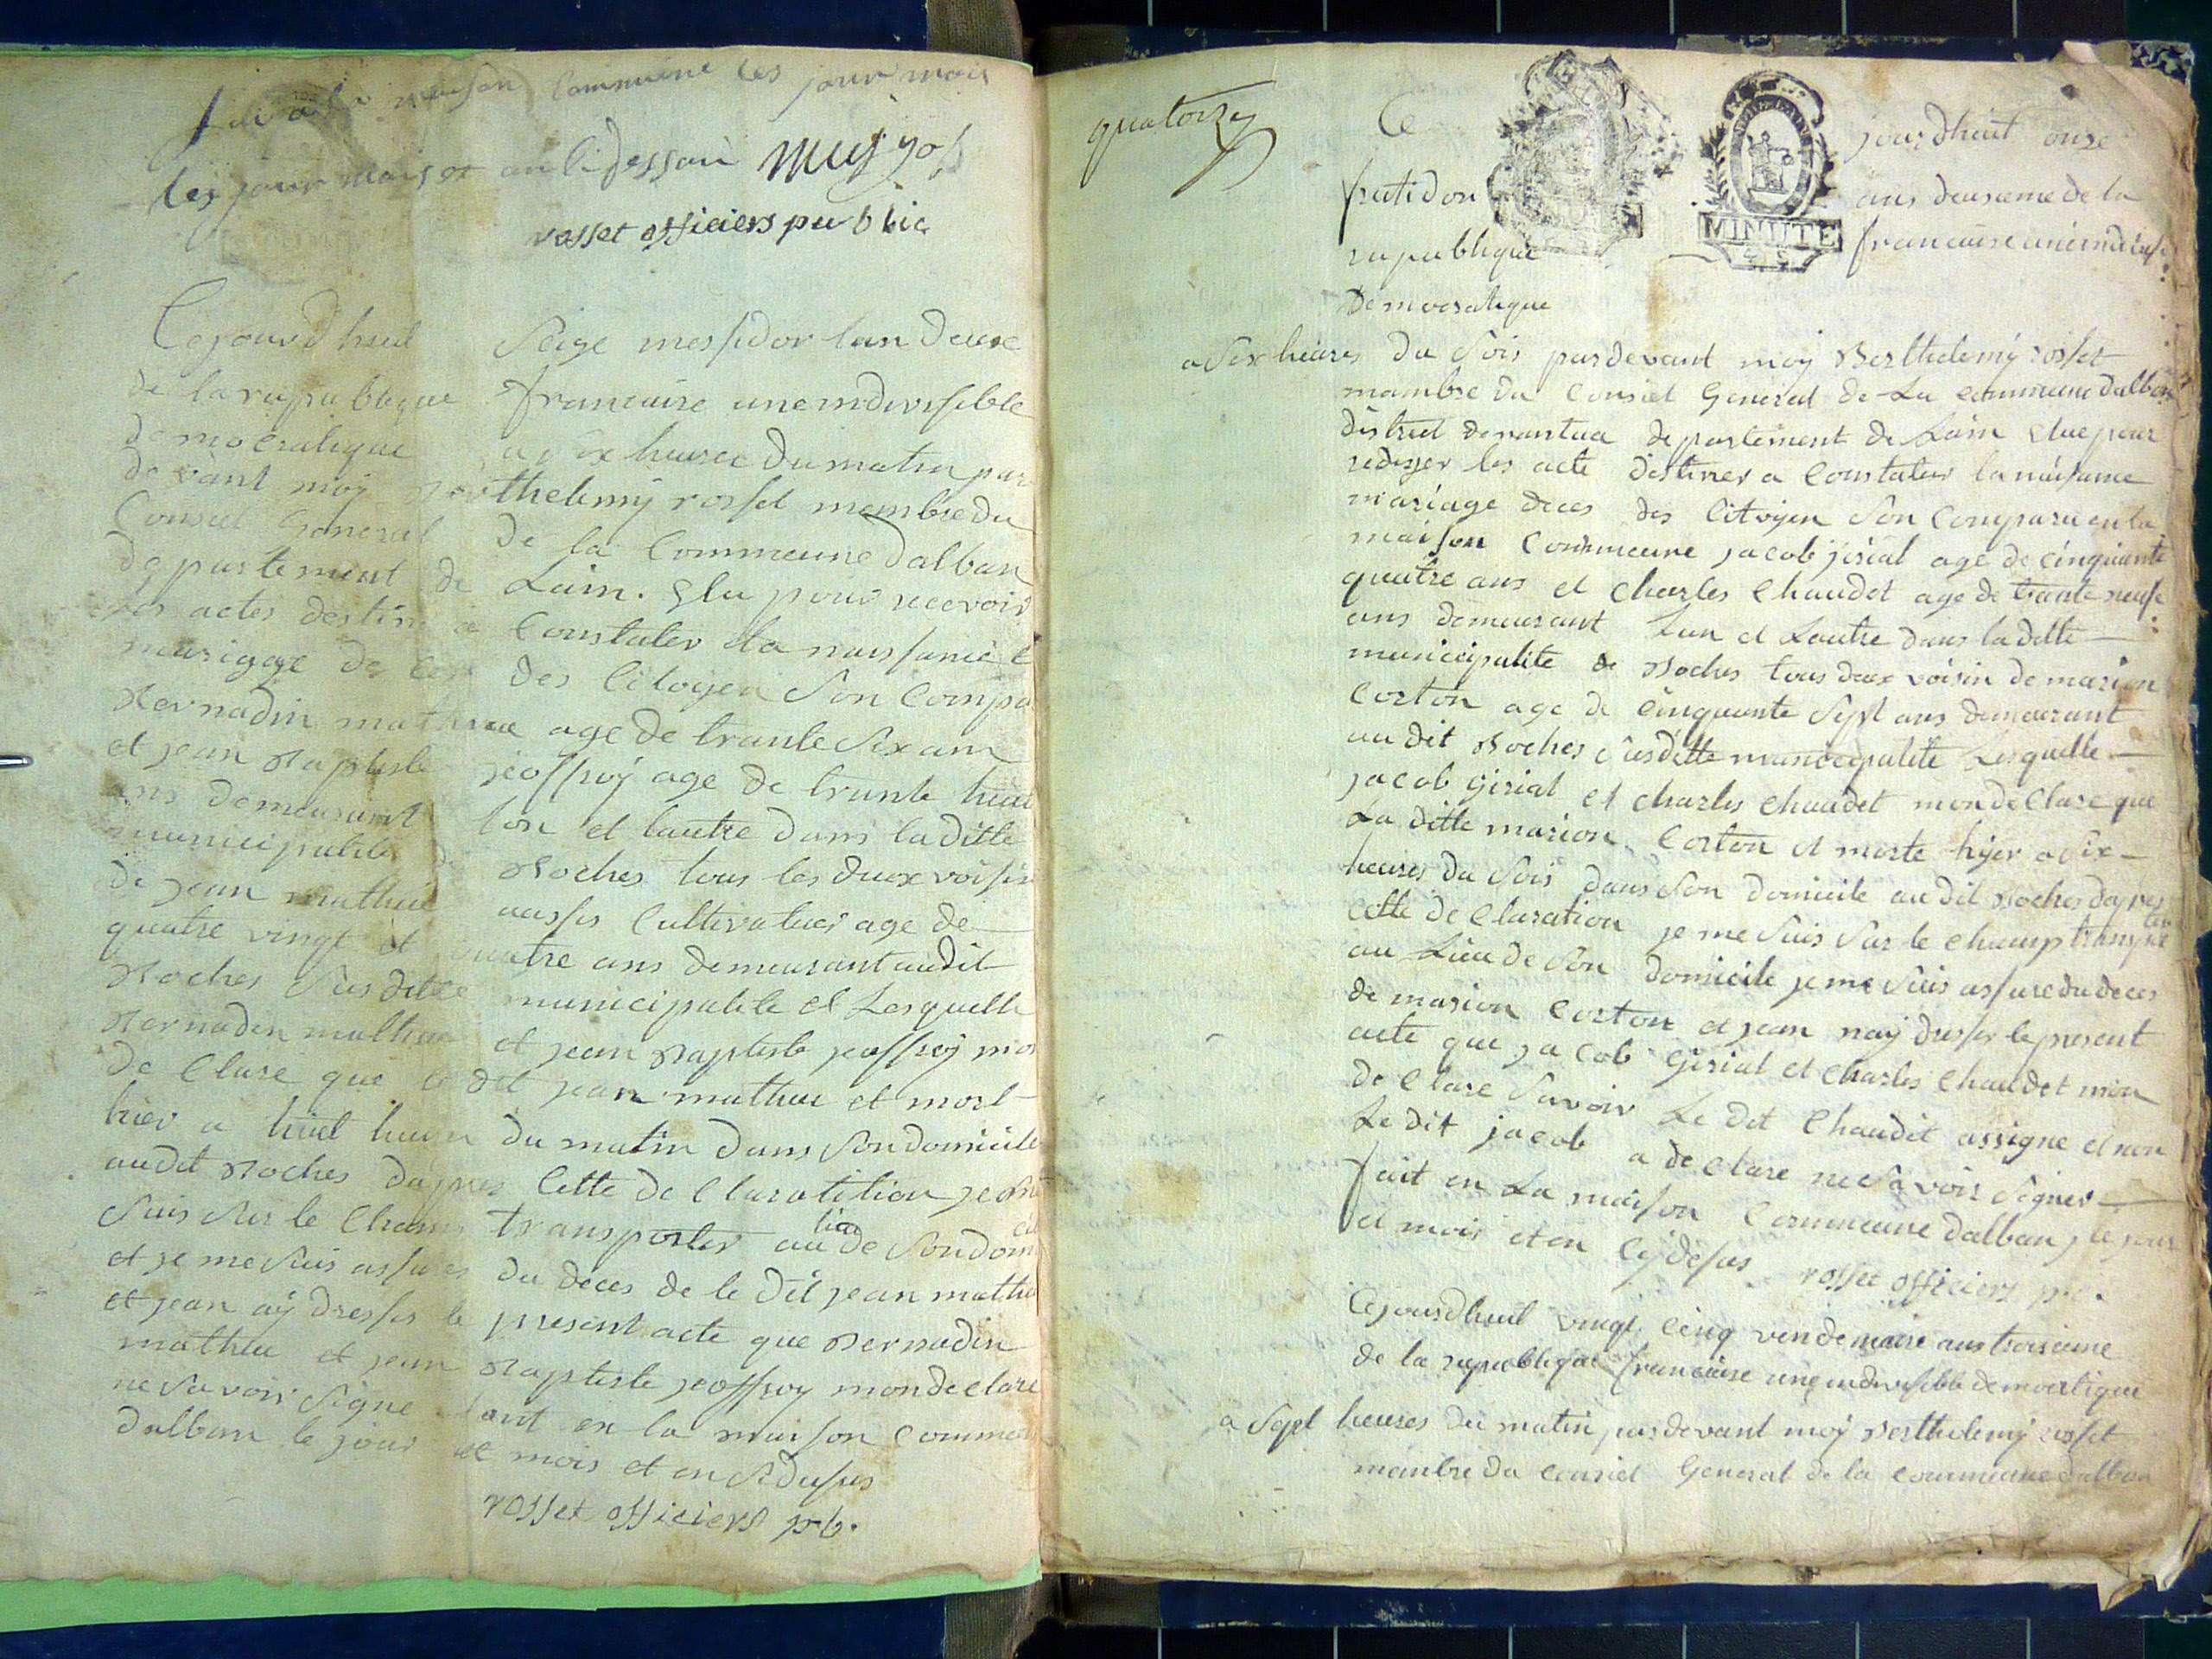 maison Commune les jour mois
les jour mois et an cidessou
rosset officiers publia
Cejourdhuit Seize messidor lan deuxe
de la republique francaise une indivisible
democratique a dix heures du matin par
devant moy Berthelemy rosset membre du
Conseil General de la Commeune dalban
departement de Lain. Elu pour recevoir
les actes destine a Constater la naissance
mariage deces des Citoyen Son Compa
Bernadin mathieu age de trante Six ans
et jean Baptiste jeoffroy age de trante huit
ans demeurant lon et lautre dans la ditte
municipalite de Roches tous les deux voisin
de jean mathieu aussis Cultivateur age de
quatre vingt et quatre ans demeurant audit
Roches Susditte municipalite et Lesquelle
Bernadin mathieu et jean Baptiste jeoffroy mon
de Clare que le dit jean mathieu et mort
hier a huit heures du matin dans Son domicile
audit Roches dapres Cette de Claratition je me
Suis Sur le Champ transporter au lieu de Son domicile
et je me Suis assures du deces de le dit jean mathie
et jean ay dresses le present acte que Bernadin
mathieu et jean Baptiste jeoffroy mon de clare
ne Savoir Signe fant en la maison Commeune
dalban le jour et mois et en Sidesus
rosset officiers pb.
quatorze
Ce jourdhuit onze
frutidor ans deuxieme de la
republique francaise une indivis
Democratique
MINUTE
a Six heures du Soir par devant moy Berthelemy rosset
mambre du Conseil General de La Commeune dalban
district denantua departement de Lain elue pour
rediger les acte destiner a Constater la naisance
mariage deces des Citoyen Son Comparu en la
maison Commeune jacob jirial age de cinquante
quatre ans et Charles Chaudet age de trante neufe
ans demeurant Lun et Lautre dans la ditte
municipalite de Roches tous deux voisin de marion
Corton age de cinquante Sept ans demeurant
au dit Roches Susditte municipalite Lesquelle
jacob Girial et charles chaudet mon de Clare que
La ditte marion Corton et morte hyer a Six
heures du Soir dans Son domicile au dit Roches dapres
cette de Claration je me Suis Sur le Champ transporter
au Lieu de Son domicile je me Suis assure du deces
de marion Corton et jean nay dresser le present
acte que jacob Girial et Charles Chaudet mon
de Clare Savoir Le dit Chaudet assigne et non
Le dit jacob a de clare ne Savoir Signer
fait en La maison Commeune dalban le jour
et mois et en Cydesus rosset officiers p.b.
Cejourdhuit vingt Cinq vendemiaire ans troisieme
de la republique francaise une indivisible democratique
a Sept heures du matin par devant moy Berthelemy rosset
membre du Conseil General de la Commeune dalban